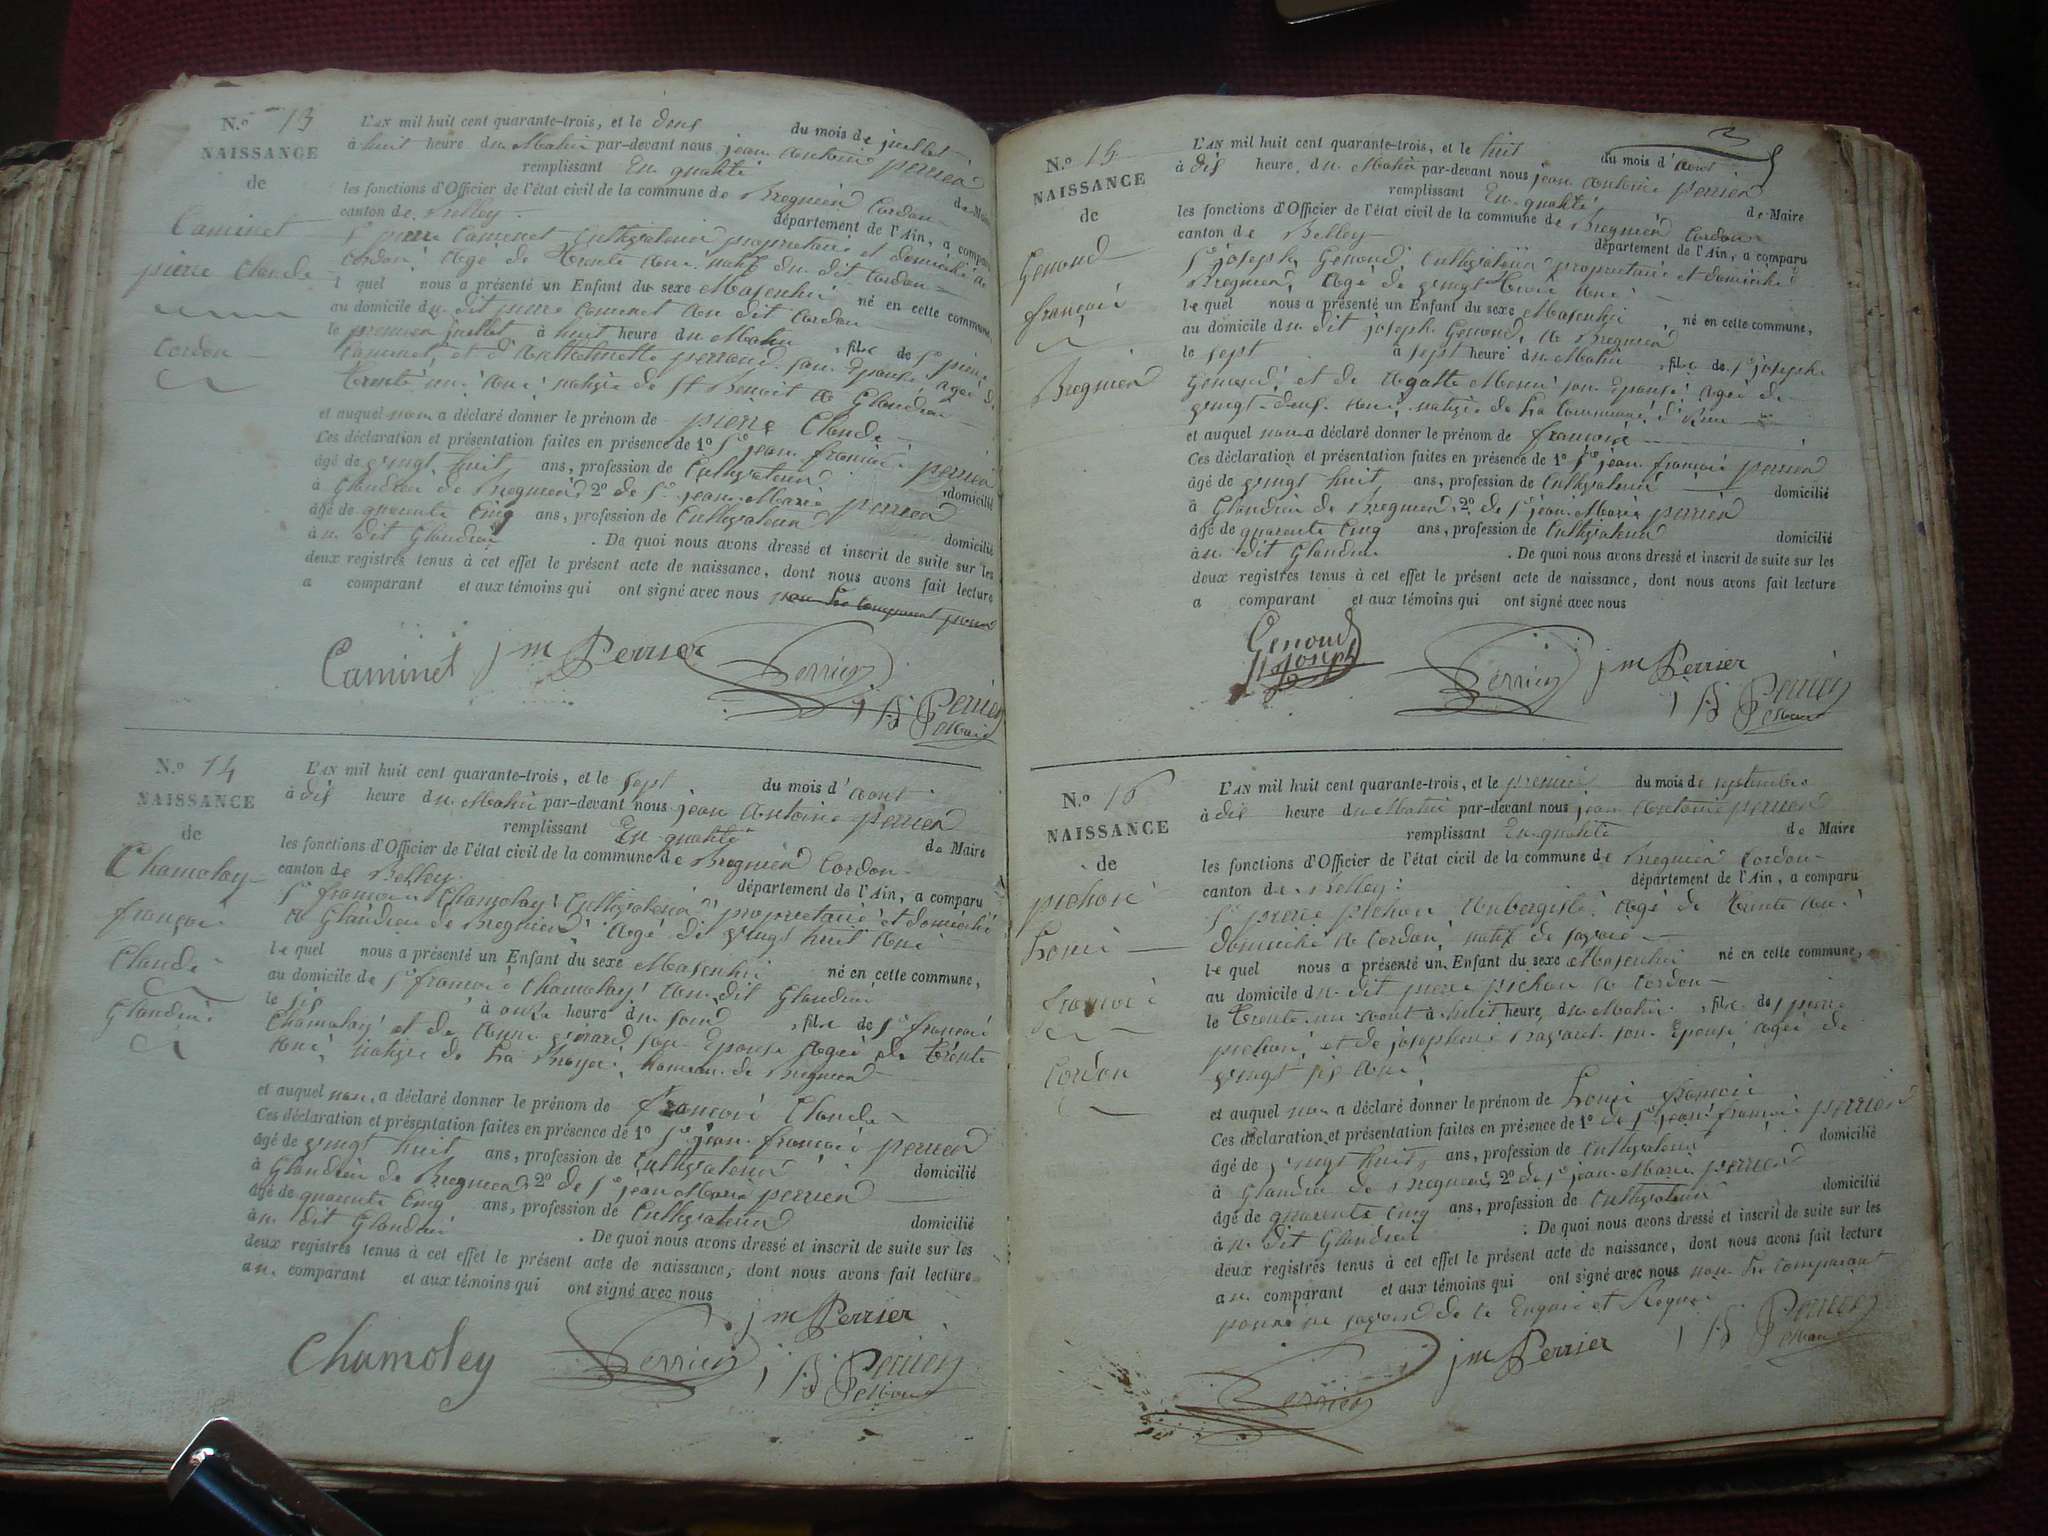 N.o 13
NAISSANCE
de
Caminet
pierre Claude
Cordon
L'AN mil huit cent quarante-trois, et le deux du mois de juillet
à huit heure du Matin par-devant nous jean Antoine perrier
remplissant En qualité de Maire
les fonctions d'Officier de l'état civil de la commune de Bregnier Cordon
canton de Belley département de l'Ain, a comparu
Sr pierre Caminet Cultivateur propriétaire et domicilié de
Cordon, Agé de trente Ans natif du dit Cordon
lequel nous a présenté un Enfant du sexe Masculin né en cette commune,
au domicile du dit pierre Caminet Au dit Cordon
le premier juillet à huit heure du Matin, fils de Sr pierre
Caminet, et d'Anthelmette perroud son Epouse, agée de
trente un Ans native de St Benoit A Glandieu
et auquel nom a déclaré donner le prénom de pierre Claude
Ces déclaration et présentation faites en présence de 1o Sr jean françois perrier
âgé de vingt huit ans, profession de Cultivateur domicilié
à Glandieu de Bregnier 2o de Sr jean Marie perrier
âgé de quarente Cinq ans, profession de Cultivateur domicilié
au dit Glandieu. De quoi nous avons dressé et inscrit de suite sur les
deux registres tenus à cet effet le présent acte de naissance, dont nous avons fait lecture
a comparant et aux témoins qui ont signé avec nous non Le Comparant pour
Caminet jm Perrier Perrier
Perrier
Maire
N.o 14
NAISSANCE
de
Chamolay
françois
Claude
Glandieu
L'AN mil huit cent quarante-trois, et le sept du mois d'Aout
à dix heure du Matin par-devant nous jean Antoine perrier
remplissant En qualité de Maire
les fonctions d'Officier de l'état civil de la commune de Bregnier Cordon
canton de Belley département de l'Ain, a comparu
Sr françois Chamolay Cultivateur propriétaire et domicilié
A Glandieu de Bregnier Agé de vingt huit Ans
lequel nous a présenté un Enfant du sexe Masculin né en cette commune,
au domicile de Sr françois Chamolay Au dit Glandieu
le six à onze heure du soir, fils de Sr françois
Chamolay et de Anne girard son Epouse Agée de trente
Ans, native de La Bruyere, hameau de Bregnier
et auquel nom a déclaré donner le prénom de françois Claude
Ces déclaration et présentation faites en présence de 1o Sr jean françois perrier
âgé de vingt huit ans, profession de Cultivateur domicilié
à Glandieu de Bregnier 2o de Sr jean Marie perrier
âgé de quarente Cinq ans, profession de Cultivateur domicilié
au dit Glandieu. De quoi nous avons dressé et inscrit de suite sur les
deux registres tenus à cet effet le présent acte de naissance, dont nous avons fait lecture
au comparant et aux témoins qui ont signé avec nous
jm Perrier
Chamoley Perrier Perrier
Maire
N.o 15
NAISSANCE
de
Genoud
françois
Bregnier
L'AN mil huit cent quarante-trois, et le huit du mois d'Aout
à dix heure du Matin par-devant nous jean Antoine perrier
remplissant En qualité de Maire
les fonctions d'Officier de l'état civil de la commune de Bregnier Cordon
canton de Belley département de l'Ain, a comparu
Sr joseph Genoud, Cultivateur propriétaire et domicilié
Bregnier, Agé de vingt trois Ans
lequel nous a présenté un Enfant du sexe Masculin, né en cette commune,
au domicile du dit joseph Genoud, A Bregnier
le sept à sept heure du Matin, fils de Sr joseph
Genoud, et de Agatte son Epouse Agée de
vingt-deux Ans, native de La Commune
et auquel nom a déclaré donner le prénom de françois
Ces déclaration et présentation faites en présence de 1o Sr jean françois perrier
âgé de vingt huit ans, profession de Cultivateur domicilié
à Glandieu de Bregnier 2o de Sr jean Marie perrier
âgé de quarente Cinq ans, profession de Cultivateur domicilié
au dit Glandieu. De quoi nous avons dressé et inscrit de suite sur les
deux registres tenus à cet effet le présent acte de naissance, dont nous avons fait lecture
a comparant et aux témoins qui ont signé avec nous
Genoud
Joseph Perrier jm Perrier
Perrier
Maire
N.o 16
NAISSANCE
de
pichon
Louis
françois
Cordon
L'AN mil huit cent quarante-trois, et le premier du mois de septembre
à dix heure du Matin par-devant nous jean Antoine perrier
remplissant En qualité de Maire
les fonctions d'Officier de l'état civil de la commune de Bregnier Cordon
canton de Belley département de l'Ain, a comparu
Sr pierre pichon Aubergiste Agé de trente Ans
domicilié A Cordon, natif de savoie
lequel nous a présenté un Enfant du sexe Masculin né en cette commune,
au domicile du dit pierre pichon A Cordon
le trente un Aout à huit heure du Matin, fils de pierre
pichon, et de josephine son Epouse Agée de
vingt six Ans
et auquel nom a déclaré donner le prénom de Louis françois
Ces déclaration et présentation faites en présence de 1o de Sr jean françois perrier
âgé de vingt huit ans, profession de Cultivateur domicilié
à Glandieu de Bregnier 2o de Sr jean Marie perrier
âgé de quarente Cinq ans, profession de Cultivateur domicilié
au dit Glandieu. De quoi nous avons dressé et inscrit de suite sur les
deux registres tenus à cet effet le présent acte de naissance, dont nous avons fait lecture
au comparant et aux témoins qui ont signé avec nous non Le Comparant
pour ne savoir de ce Enquis et Requis
Perrier jm Perrier Perrier
Maire